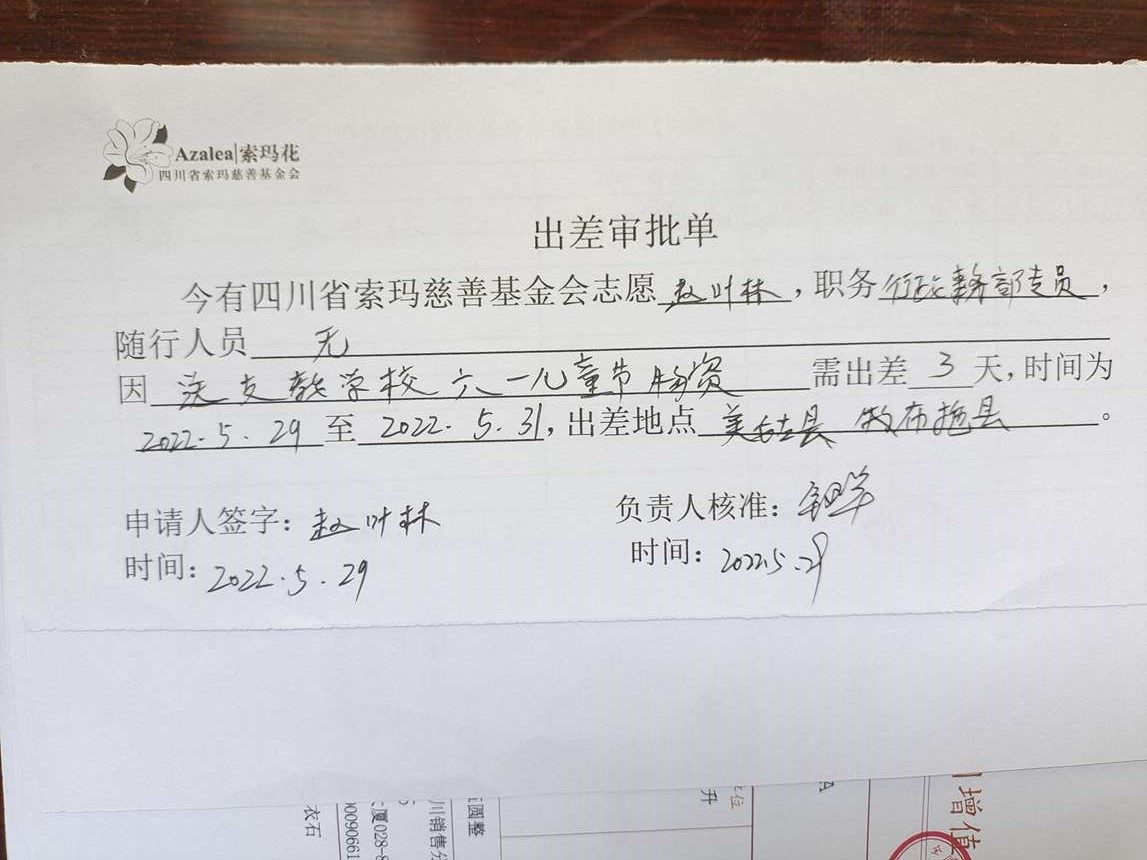 Azalea|索玛花
四川省索玛慈善基金会
出差审批单
今有四川省索玛慈善基金会志愿 赵叶林，职务 行政事务部专员，
随行人员 无
因 送支教学校六一儿童节物资 需出差 3 天，时间为
2022.5.29 至 2022.5.31，出差地点 美姑县 布拖县。
申请人签字：赵叶林
负责人核准：
时间：2022.5.29
时间：2022.5.29
衣石
00090661
厦028-8
川销售分
圆整
升
位
A
增值